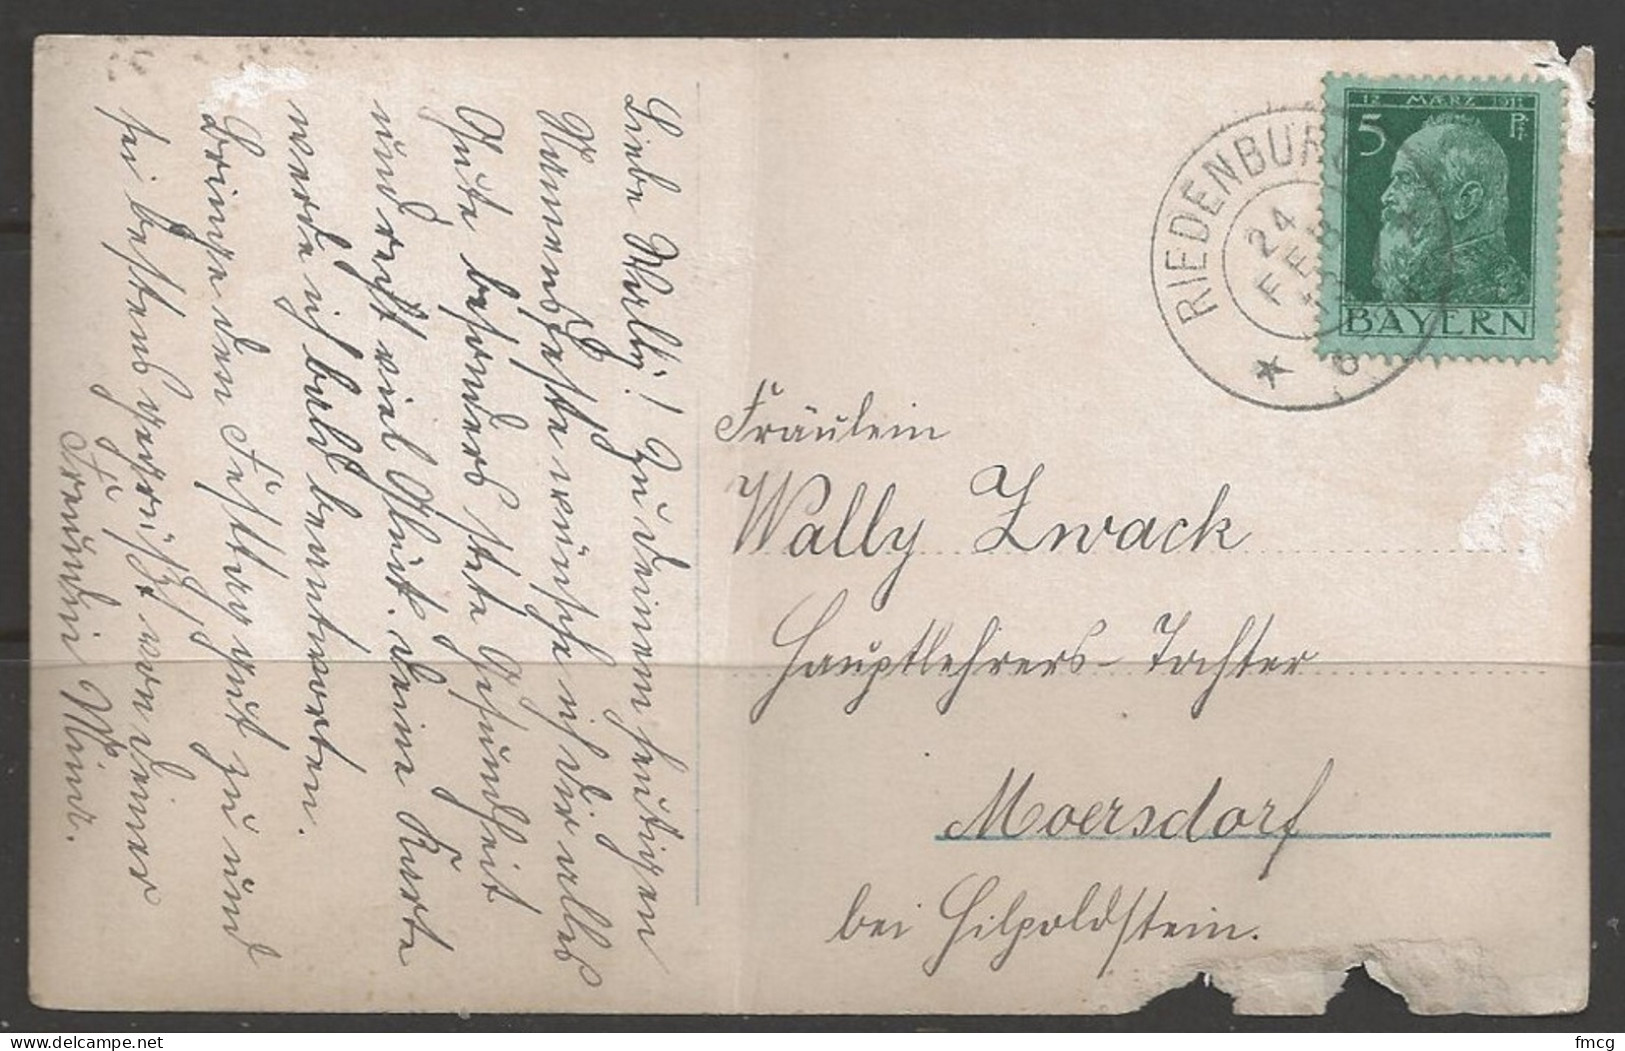 Liebe Wally! Zu deinem heutigen
Namensfeste wünsche ich dir alles
Gute besonders stete Gesundheit
und recht viel Glück. Deine Karte
werde ich bald beantworten.
Bringe den Festtag gut zu und
sei bestens gegrüßt von deiner
Freundin Mina.
12 MÆRZ 1911
5 Pf.
BAYERN
RIEDENBURG
24
FEB
Fräulein
Wally Zwack
Hauptlehrers-Tochter
Moersdorf
bei Hilpoldstein.
fmcg